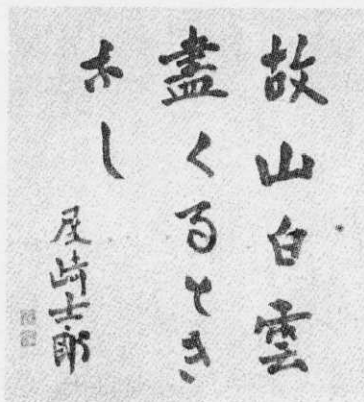 故山白雲
盡くるとき
なし
尾崎士郎